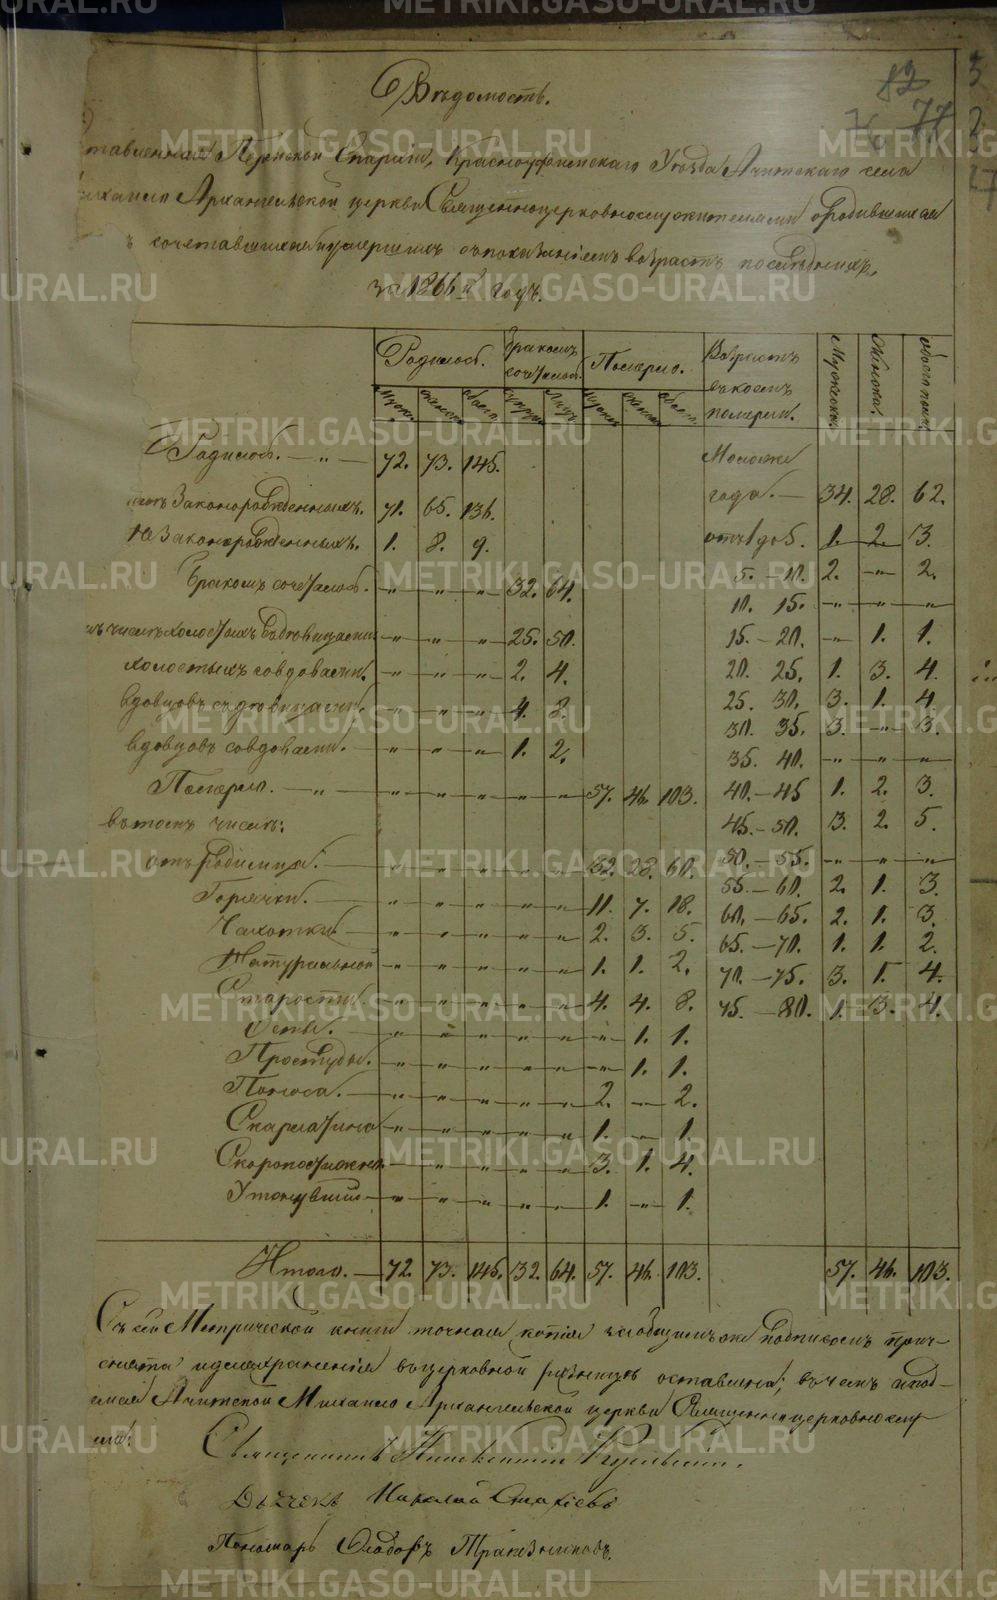 METRIKI.GASO-URAL.RU
Вѣдомость.
82
77
76
Пермской Епархіи, Красноуфимскаго Уѣзда, Ачитскаго села
Михаило Архангельской церкви Священноцерковнослужителями о родившихся
сочетавшихся и умершихъ съ показаніемъ возраста послѣднихъ,
за 1866й годъ.
Родилось. Бракомъ сочеталось. Померло. Возрастъ въ коемъ померли. Мужеска. Женска. Обоего пола
Мужес. Женск. Обоего. Супруж. Лицъ. Мужеск. Женск. Обоего.
Родилось. — „ — 72. 73. 145.
Законорожденныхъ. 71. 65. 136.
Незаконорожденныхъ. 1. 8. 9.
Бракомъ сочеталось. „ „ „ 32. 64.
въ числѣ холостыхъ съ дѣвицами „ „ „ 25. 50.
холостыхъ со вдовами. „ „ „ 2. 4.
вдовцовъ съ дѣвицами. „ „ „ 4. 8.
вдовцовъ со вдовами. „ „ „ 1. 2.
Померло. — „ — „ „ „ „ „ 57. 46. 103.
въ томъ числѣ:
отъ Родимца. „ „ „ „ „ 32. 28. 60.
Горячки. „ „ „ „ „ 11. 7. 18.
Чахотки „ „ „ „ „ 2. 3. 5.
Натуральной „ „ „ „ „ 1. 1. 2.
Старости. „ „ „ „ „ 4. 4. 8.
Оспы. „ „ „ „ „ „ 1. 1.
Простуды. „ „ „ „ „ „ 1. 1.
Поноса. „ „ „ „ „ 2. „ 2.
Скарлатина „ „ „ „ „ 1. „ 1.
Скоропостижно „ „ „ „ „ 3. 1. 4.
Утонувший „ „ „ „ „ 1. „ 1.
Моложе
года. — 34. 28. 62.
отъ 1 до 5. 1. 2. 3.
5. — 10. 2. „ 2.
10. 15. „ „ „
15. — 20. „ 1. 1.
20. 25. 1. 3. 4.
25. 30. 3. 1. 4.
30. 35. 3. „ 3.
35. 40. „ „ „
40. — 45 1. 2. 3.
45. — 50. 3. 2. 5.
50. — 55. „ „ „
55. — 60. 2. 1. 3.
60. — 65. 2. 1. 3.
65. — 70. 1. 1. 2.
70. — 75. 3. 1. 4.
75. — 80. 1. 3. 4.
Итого. — 72. 73. 145. 32. 64. 57. 46. 103. 57. 46. 103.
Съ сей Метрической книги точная копія за общимъ же подписомъ прич-
и для храненія въ церковной ризницѣ оставлена; въ чемъ и под-
Ачитской Михаило Архангельской церкви Священноцерковнослу
Священникъ
Дьячекъ Николай
Пономарь Ѳедоръ Трапезниковъ.